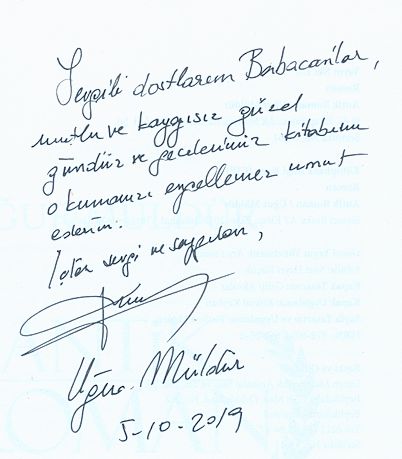 Sevgili dostlarım Babacanlar,
mutlu ve kaygısız güzel
gündüz ve geceleriniz kitabımı
okumanızı engellemez umut
ederim.
İçten sevgi ve saygılar,
Uğur Müldür
5-10-2019